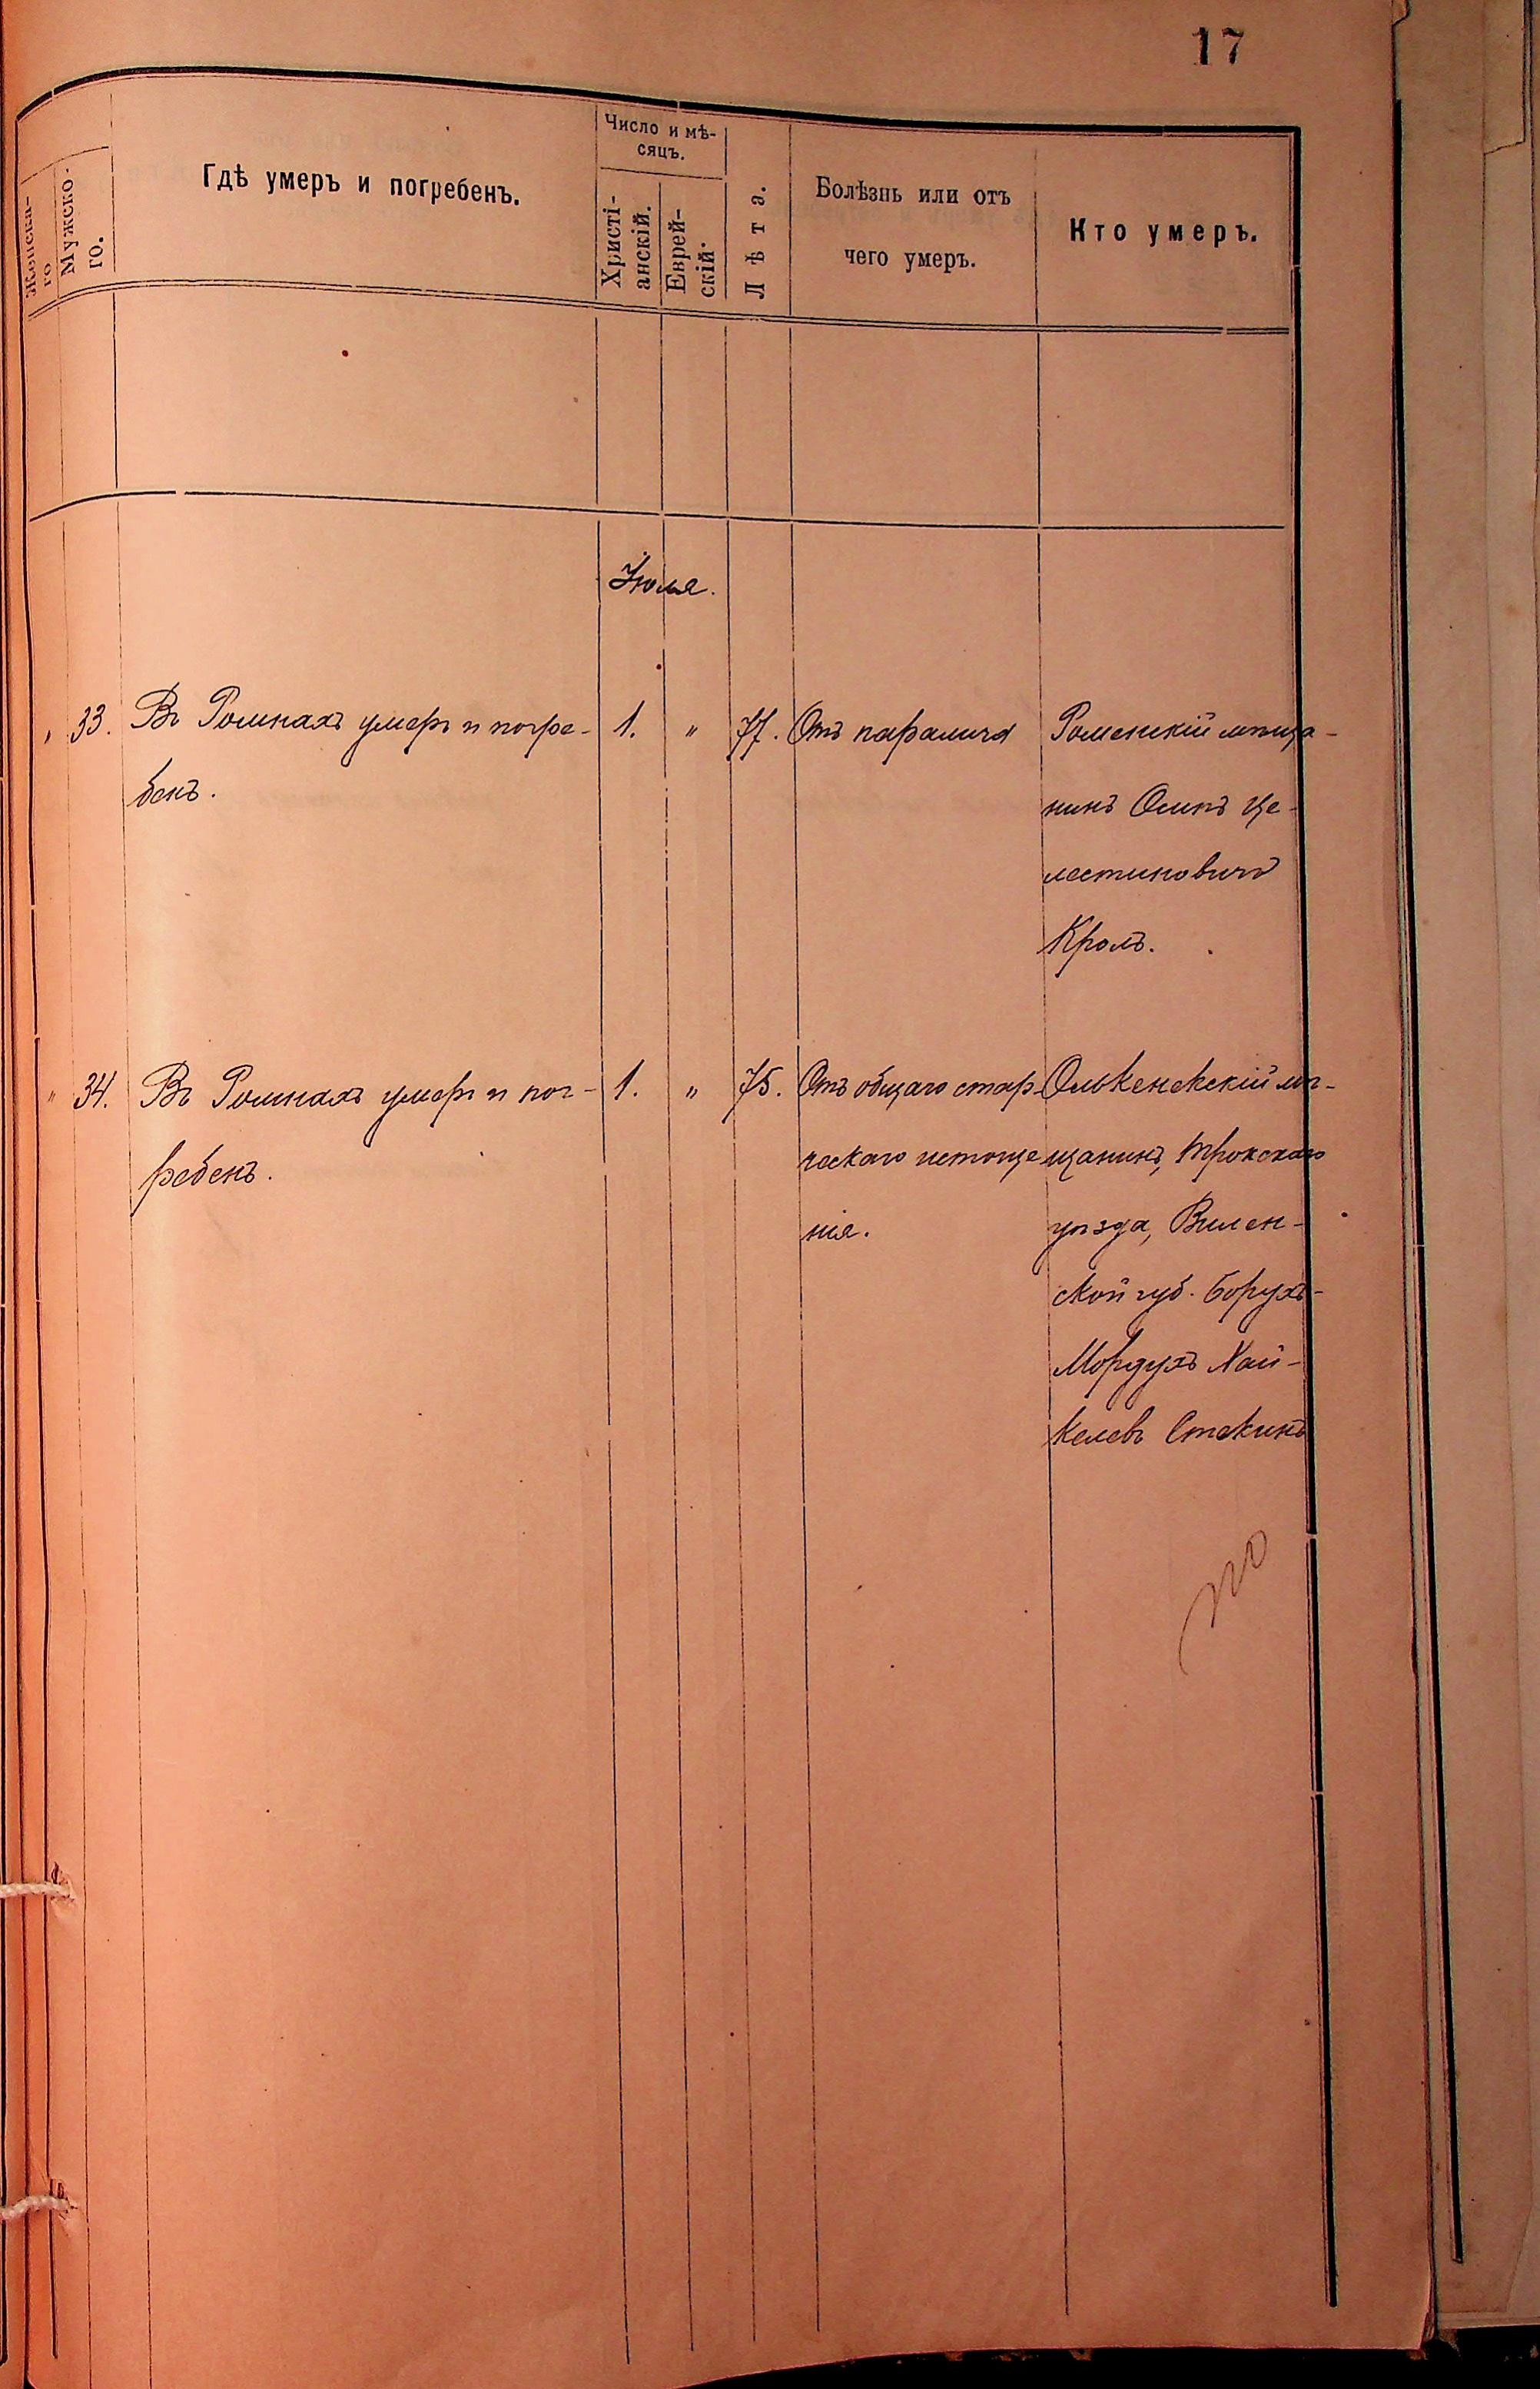 17
Женска-
го
Мужско-
го.
Гдѣ умеръ и погребенъ.
Число и мѣ-
сяцъ.
Христі-
анскій.
Еврей-
скій.
Лѣта.
Болѣзнь или отъ
чего умеръ.
Кто умеръ.
Іюля.
" 33. Въ Ромнахъ умеръ и погре- 1. " 77. Отъ паралича Роменскій мѣща-
бенъ.
нинъ Осипъ Це-
лестиновичъ
Кроль.
" 34. Въ Ромнахъ умеръ и пог- 1. " 75. Отъ общаго стар- Олькенскій мѣ-
ребенъ. ческаго истоще щанинъ, Трокскаго
нія. уѣзда, Вилен-
ской губ. Борухъ-
Мордухъ Хай-
келевъ Стекинъ